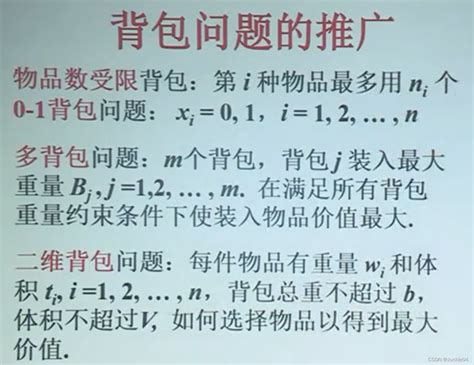 背包问题的推广
物品数受限背包：第 i 种物品最多用 nᵢ 个
0-1背包问题：xᵢ = 0, 1，i = 1, 2, … , n
多背包问题：m个背包，背包 j 装入最大
重量 Bⱼ , j =1,2, … , m. 在满足所有背包
重量约束条件下使装入物品价值最大.
二维背包问题：每件物品有重量 wᵢ 和体
积 tᵢ, i =1, 2, … , n，背包总重不超过 b，
体积不超过V, 如何选择物品以得到最大
价值.